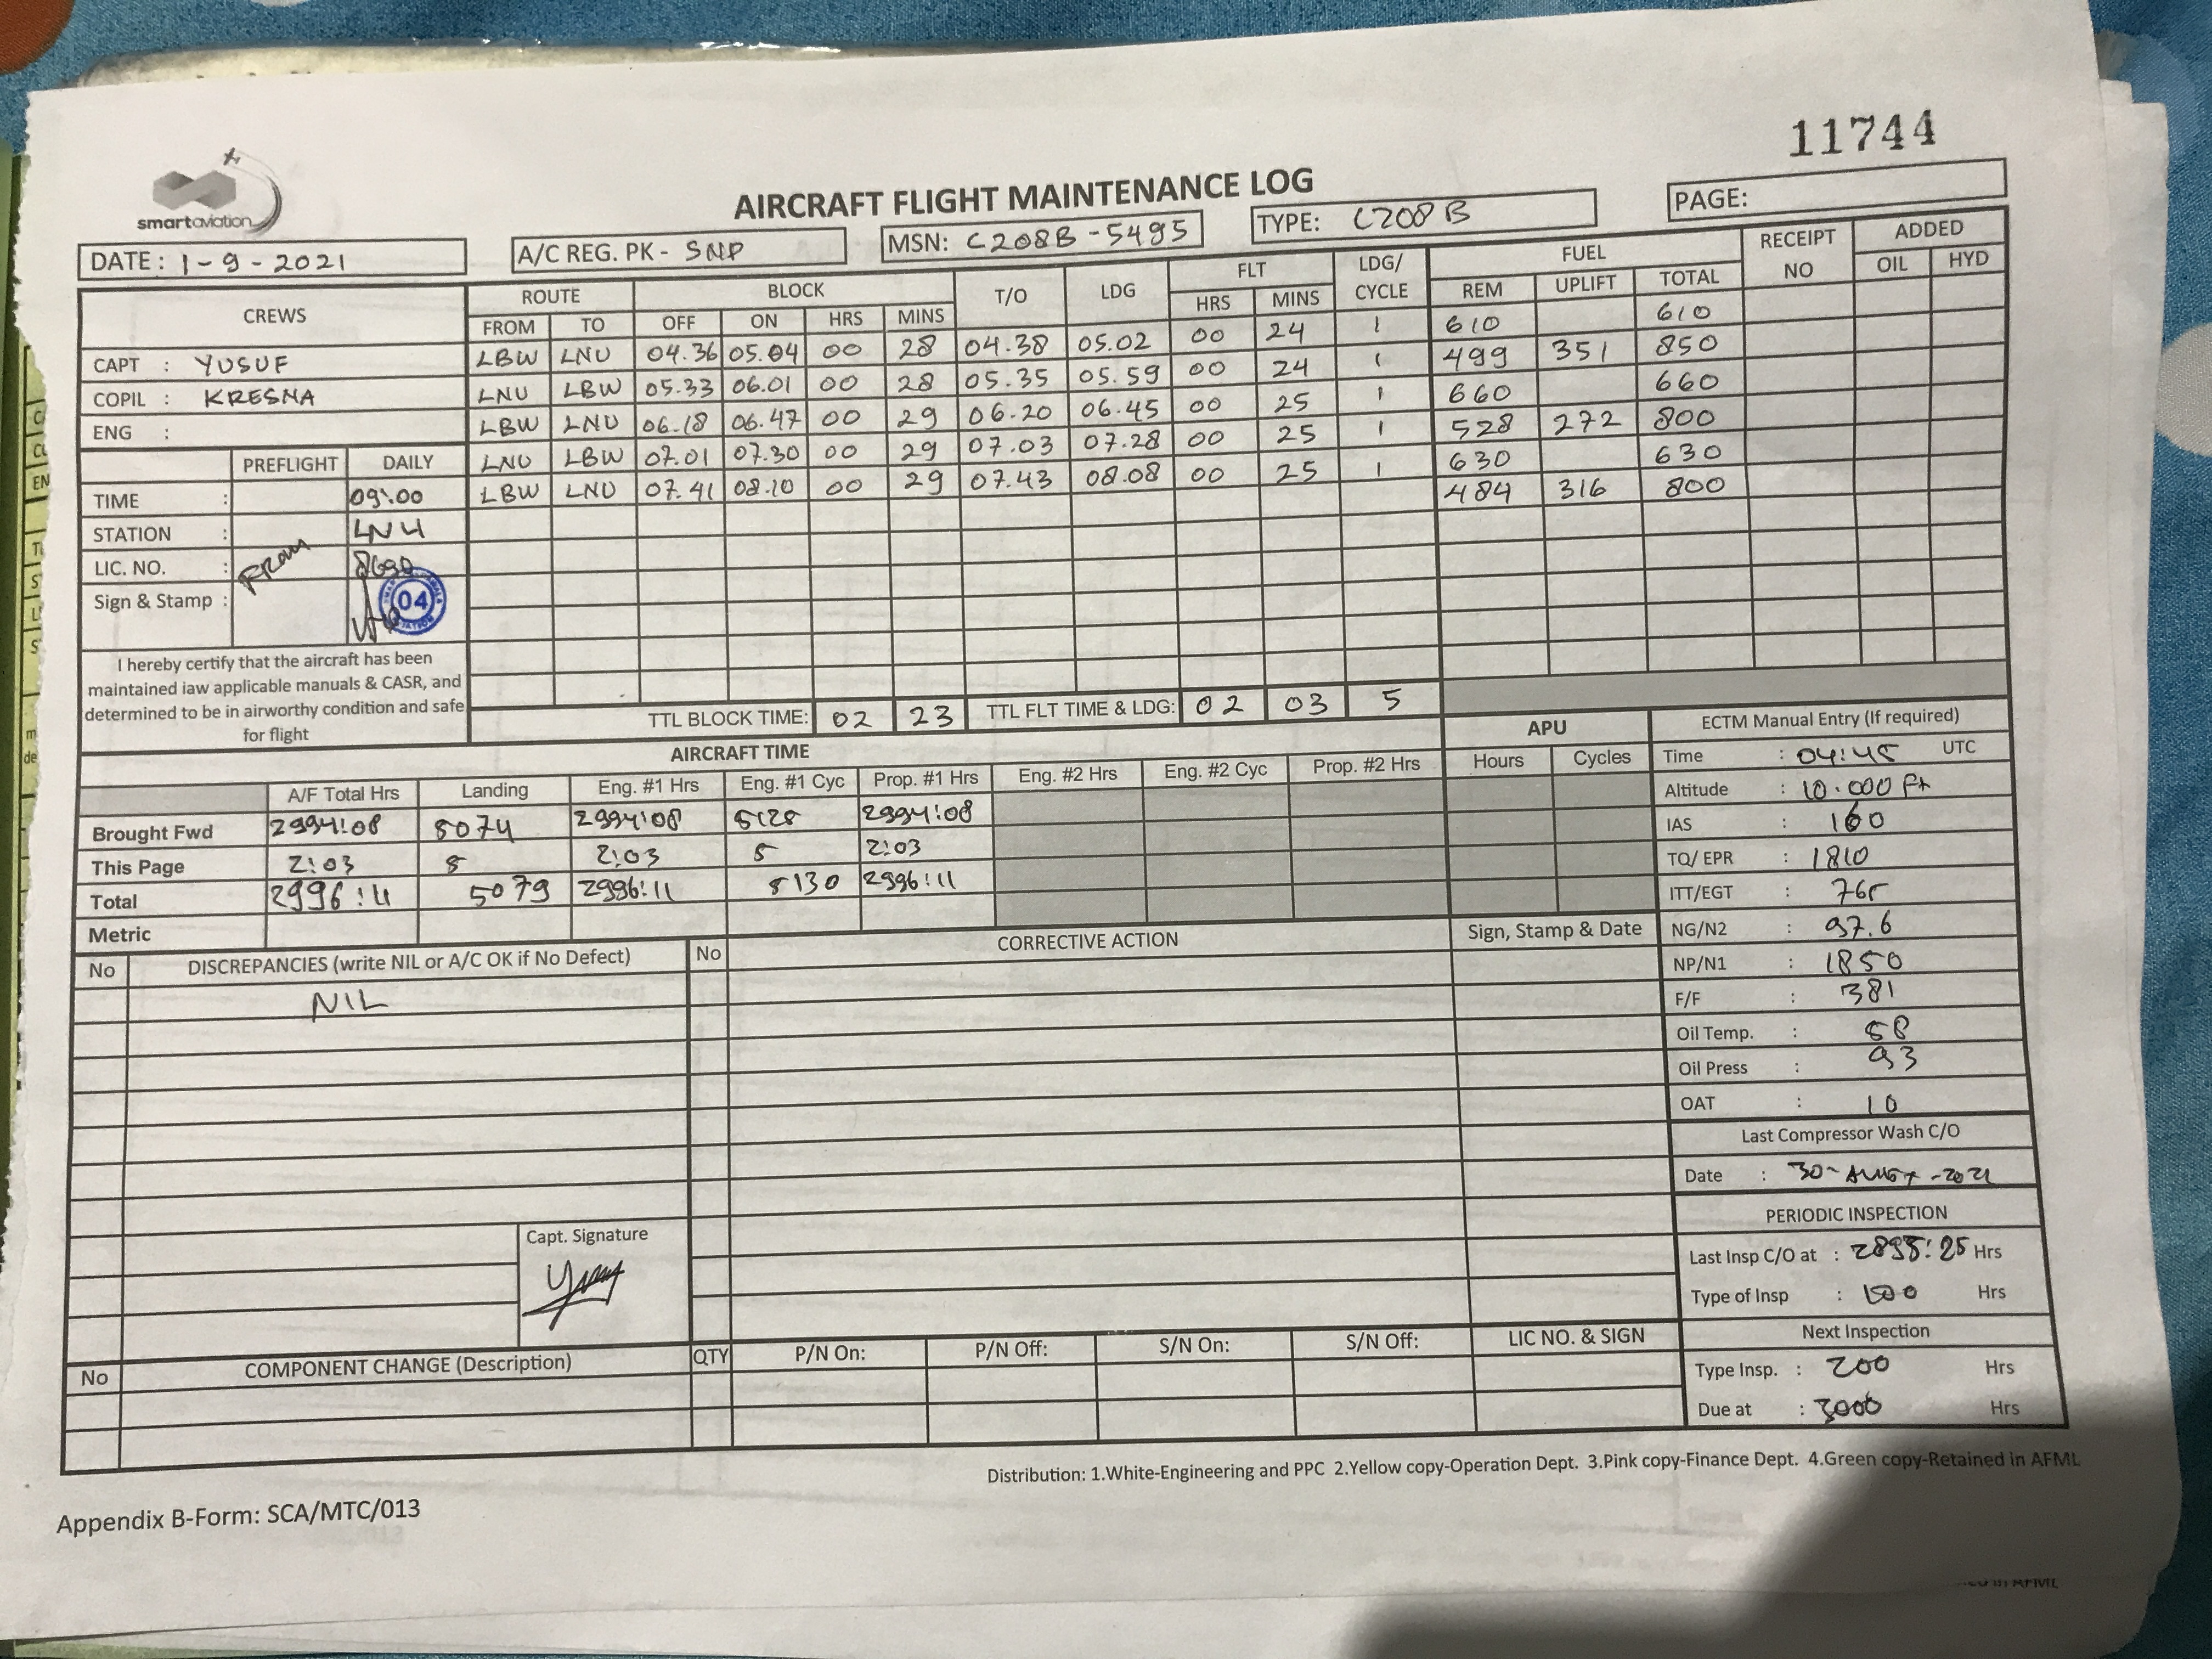 11744
smartaviation
AIRCRAFT FLIGHT MAINTENANCE LOG
PAGE:
DATE : 1-9-2021
A/C REG. PK - SNP
MSN: C208B-5495
TYPE: C208B
CREWS ROUTE BLOCK T/O LDG FLT LDG/ CYCLE FUEL RECEIPT NO ADDED
FROM TO OFF ON HRS MINS HRS MINS REM UPLIFT TOTAL OIL HYD
610 610
CAPT : YUSUF LBW LNU 04.36 05.04 00 28 04.38 05.02 00 24 1 499 351 850
COPIL : KRESNA LNU LBW 05.33 06.01 00 28 05.35 05.59 00 24 1 660 660
ENG : LBW LNU 06.18 06.47 00 29 06.20 06.45 00 25 1 528 272 800
PREFLIGHT DAILY LNU LBW 07.01 07.30 00 29 07.03 07.28 00 25 1 630 630
TIME : 09:00 LBW LNU 07.41 08.10 00 29 07.43 08.08 00 25 1 484 316 800
STATION : LNU
LIC. NO. :
Sign & Stamp : 04
I hereby certify that the aircraft has been
maintained iaw applicable manuals & CASR, and
determined to be in airworthy condition and safe
for flight
TTL BLOCK TIME: 02 23 TTL FLT TIME & LDG: 02 03 5
AIRCRAFT TIME APU
A/F Total Hrs Landing Eng. #1 Hrs Eng. #1 Cyc Prop. #1 Hrs Eng. #2 Hrs Eng. #2 Cyc Prop. #2 Hrs Hours Cycles
Brought Fwd 2994:08 5074 2994:08 5125 2994:08
This Page 2:03 5 2:03 5 2:03
Total 2996:11 5079 2996:11 5130 2996:11
Metric
ECTM Manual Entry (If required)
Time : 04:45 UTC
Altitude : 10.000 Ft
IAS : 160
TQ/ EPR : 1810
ITT/EGT : 765
NG/N2 : 97.6
NP/N1 : 1850
F/F : 381
Oil Temp. : 58
Oil Press : 93
OAT : 10
Last Compressor Wash C/O
Date : 30- -2021
PERIODIC INSPECTION
Last Insp C/O at : Hrs
Type of Insp : 100 Hrs
Next Inspection
Type Insp. : 200 Hrs
Due at : 3000 Hrs
No DISCREPANCIES (write NIL or A/C OK if No Defect) No CORRECTIVE ACTION Sign, Stamp & Date
NIL
Capt. Signature
No COMPONENT CHANGE (Description) QTY P/N On: P/N Off: S/N On: S/N Off: LIC NO. & SIGN
Distribution: 1.White-Engineering and PPC 2.Yellow copy-Operation Dept. 3.Pink copy-Finance Dept. 4.Green copy-Retained in AFML
Appendix B-Form: SCA/MTC/013